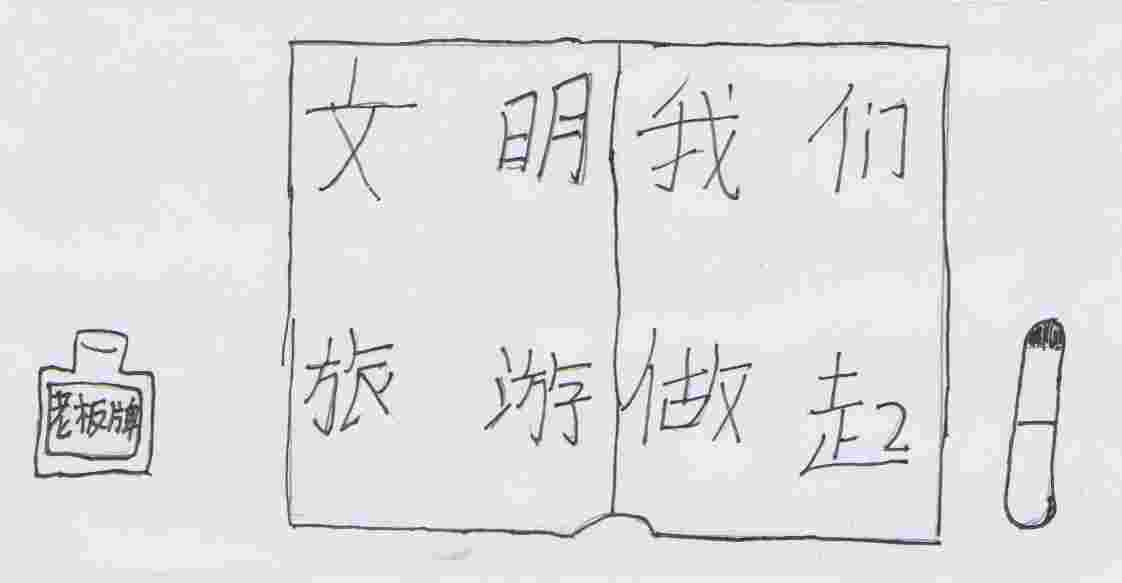 文明
旅游
我们
做起
老板牌